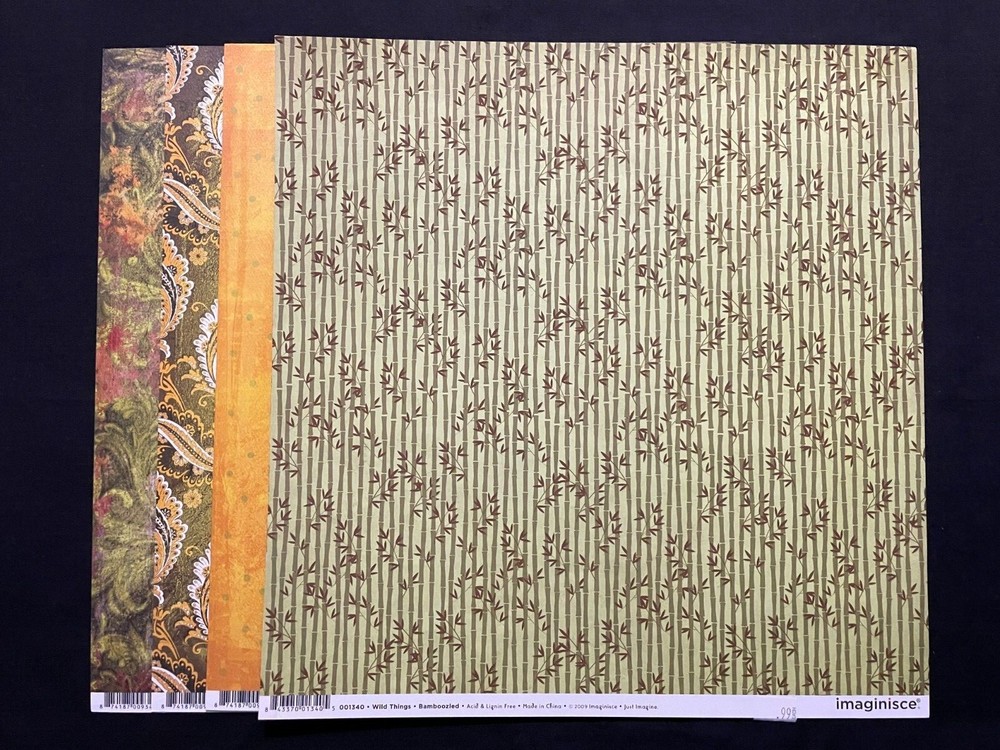 8 74187 0093
8 74187 00
8 74187 00
8 43370 01340 5 001340 • Wild Things • Bamboozled • Acid & Lignin Free • Made in China • © 2009 Imaginisce • Just Imagine
.99¢
imaginisce®